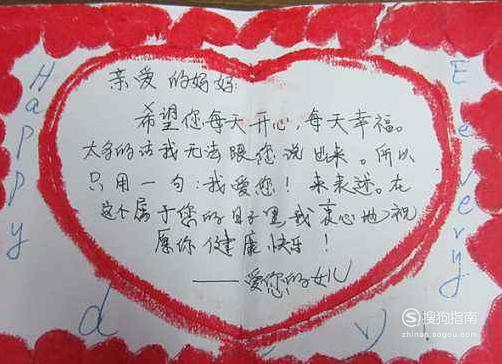 亲爱的妈妈:
希望您每天开心,每天幸福。
太多的话我无法跟您说出来。所以
只用一句:我爱您!来表述。在
这个属于您的日子里我衷心地祝
愿你健康快乐!
——爱您的女儿
Happy
Every
d
y
搜狗指南
zhinan.sogou.com